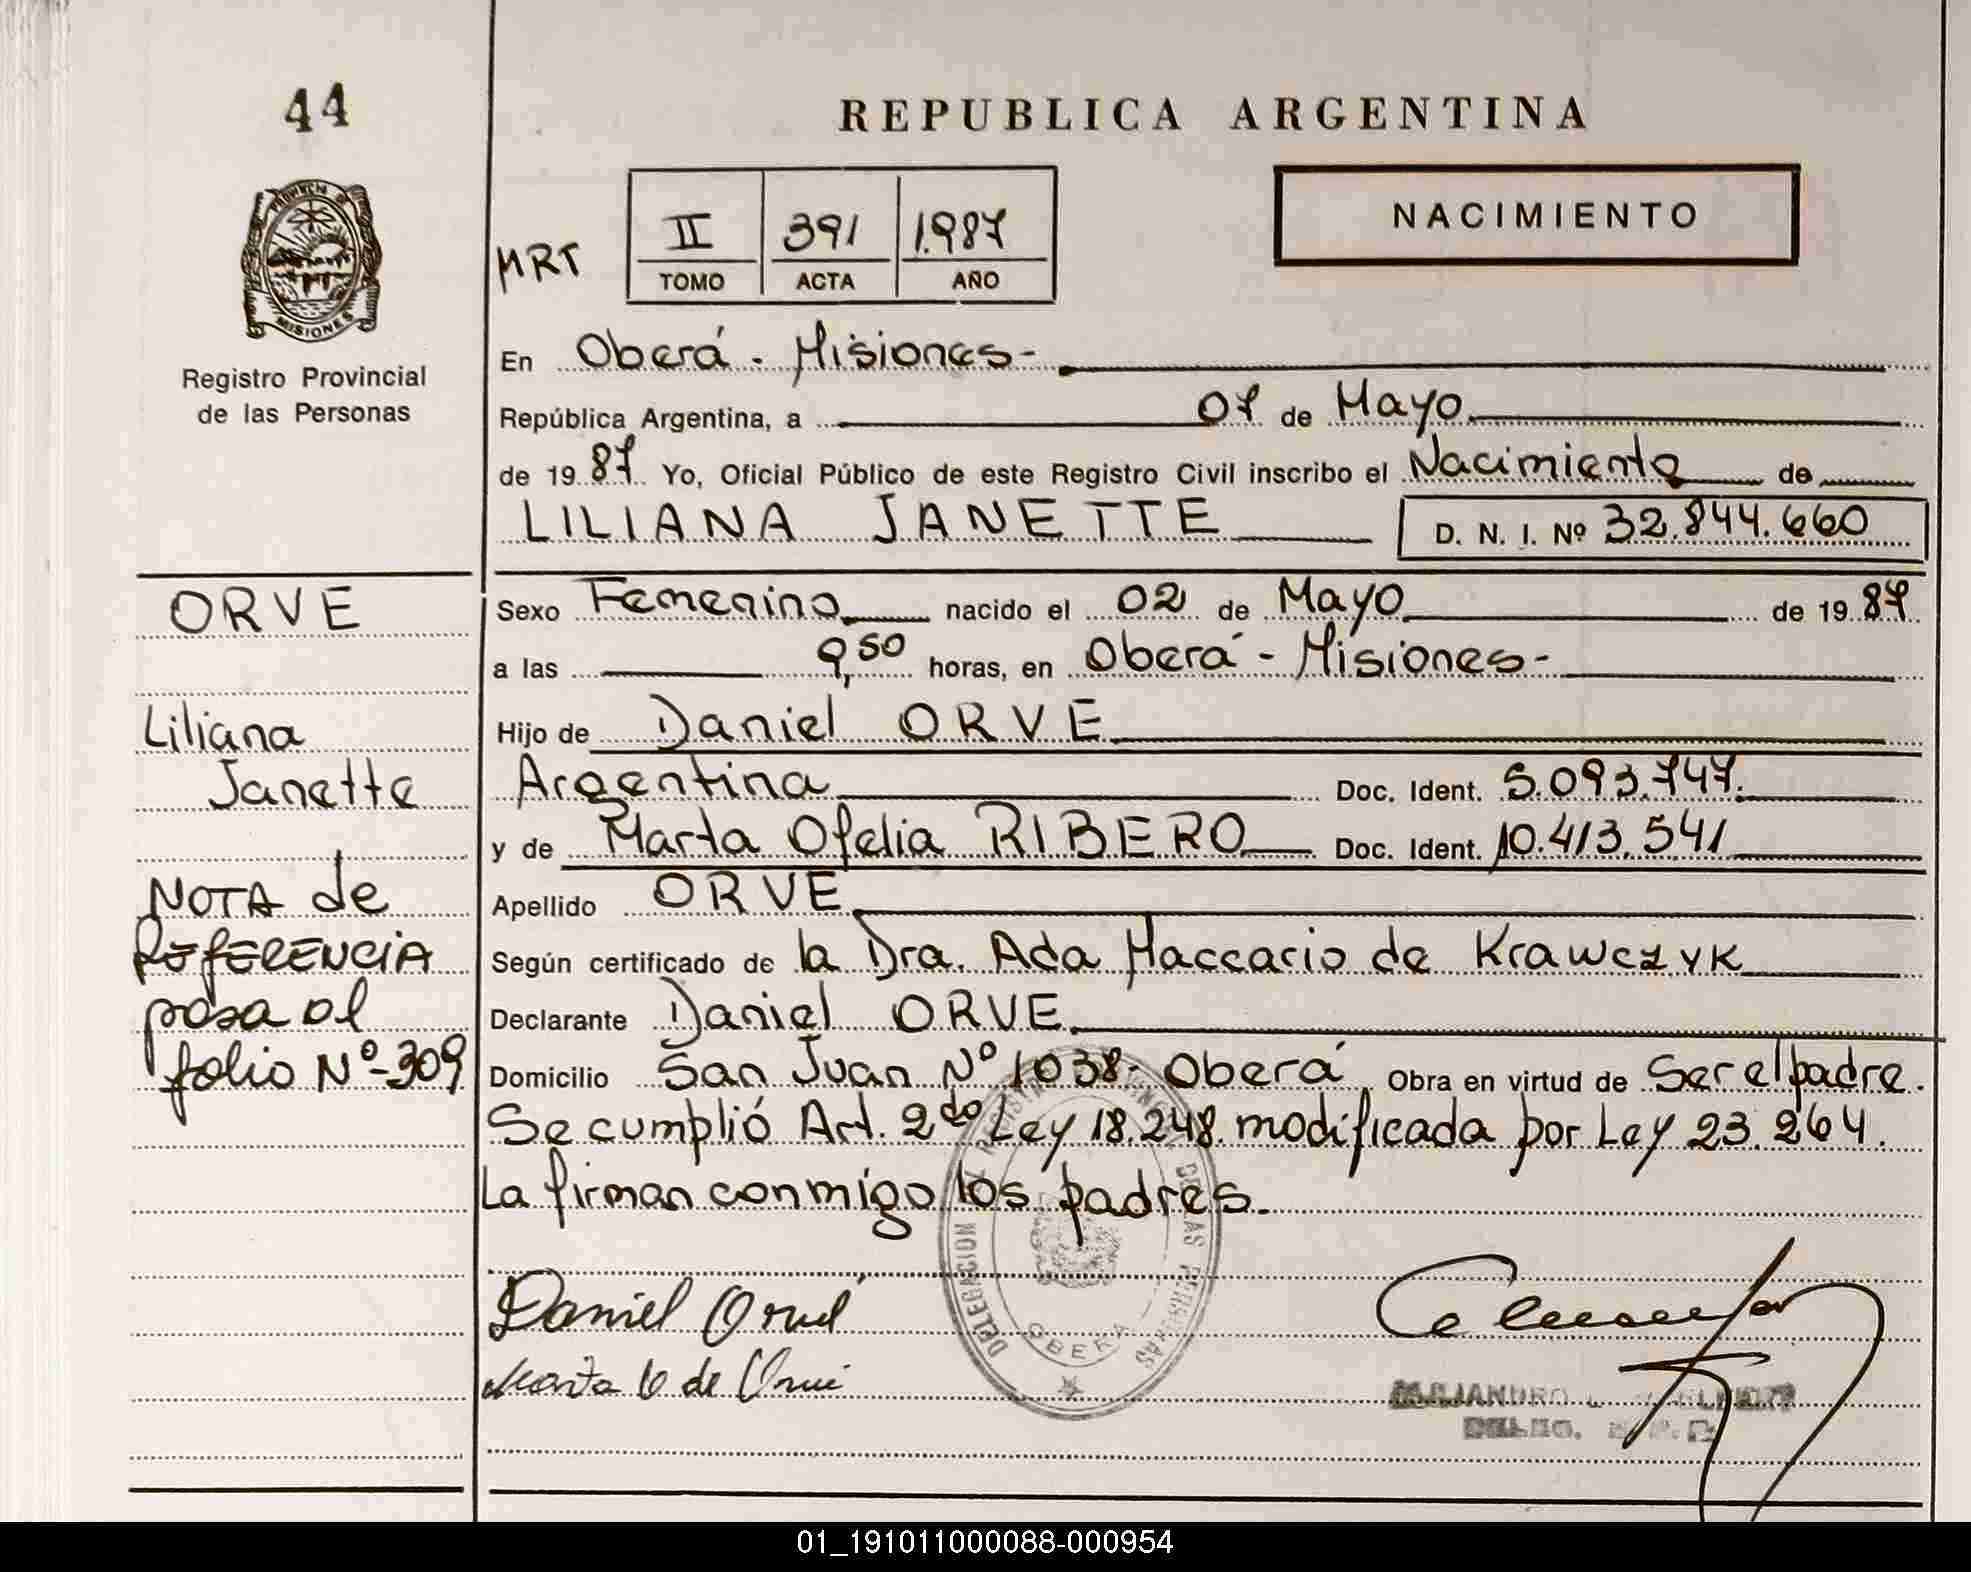 44
REPUBLICA ARGENTINA
NACIMIENTO
MRT
II 391 1.987
TOMO ACTA AÑO
PROVINCIA DE
MISIONES
Registro Provincial
de las Personas
En Oberá - Misiones-
República Argentina, a 07 de Mayo
de 19 87 Yo, Oficial Público de este Registro Civil inscribo el Nacimiento de
LILIANA JANETTE D. N. I. Nº 32.844.660
ORVE
Liliana
Janette
NOTA de
REFERENCIA
pasa al
folio Nº-309
Sexo Femenino nacido el 02 de Mayo de 19 87
a las 9,50 horas, en Oberá - Misiones-
Hijo de Daniel ORVE
Argentina Doc. Ident. 5.093.747.
y de Marta Ofelia RIBERO Doc. Ident. 10.413.541
Apellido ORVE
Según certificado de la Dra. Ada Maccario de Krawczyk
Declarante Daniel ORVE
Domicilio San Juan Nº 1038- Oberá Obra en virtud de Ser el padre.
Se cumplió Art. 2do Ley 18.248 modificada por Ley 23.264.
La firman conmigo los padres.
DELEGACION DE LAS PERSONAS
OBERA
Daniel Orvé
Marta de Orvé
01_191011000088-000954